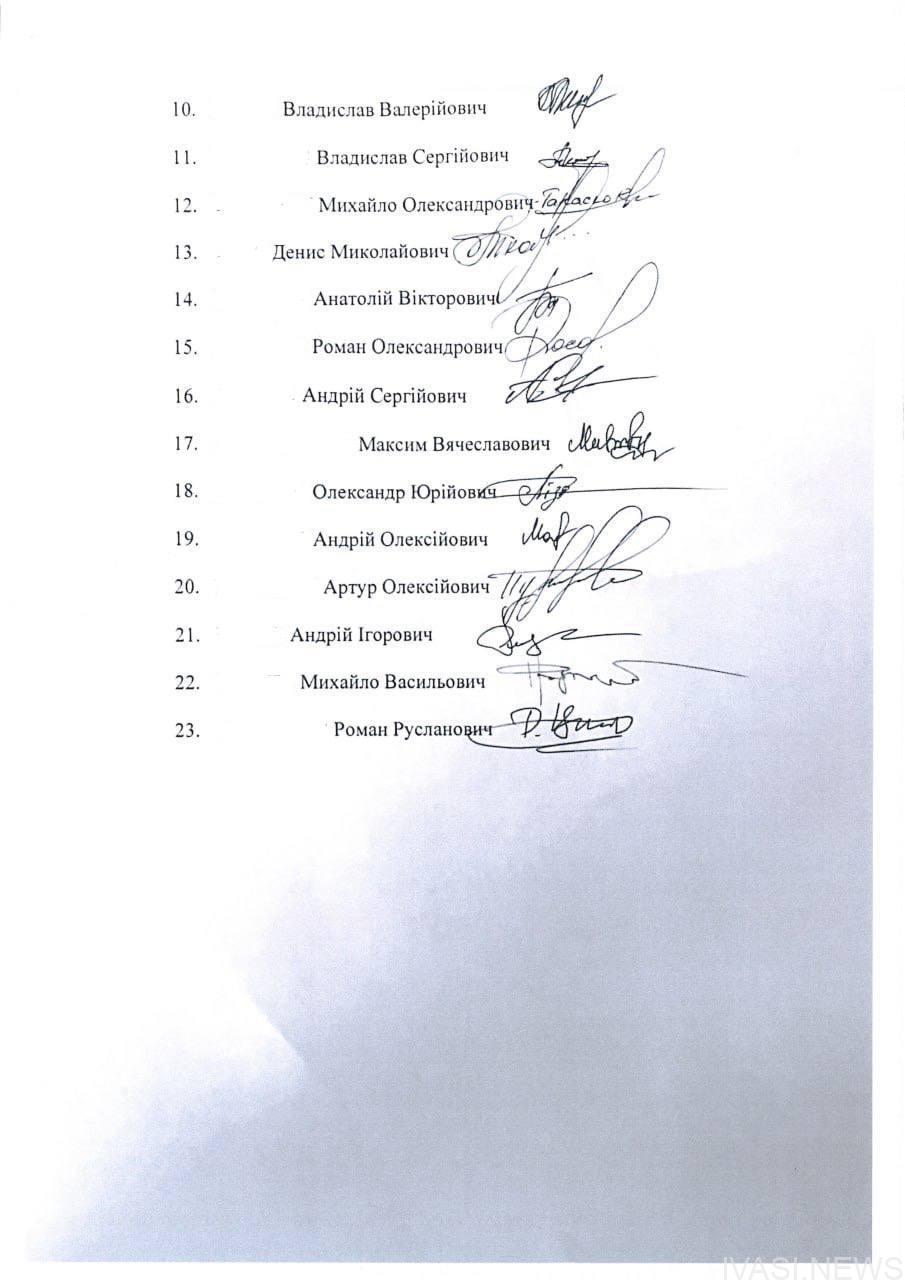 10. Владислав Валерійович
11. Владислав Сергійович
12. Михайло Олександрович
13. Денис Миколайович
14. Анатолій Вікторович
15. Роман Олександрович
16. Андрій Сергійович
17. Максим Вячеславович
18. Олександр Юрійович
19. Андрій Олексійович
20. Артур Олексійович
21. Андрій Ігорович
22. Михайло Васильович
23. Роман Русланович
IVASI.NEWS